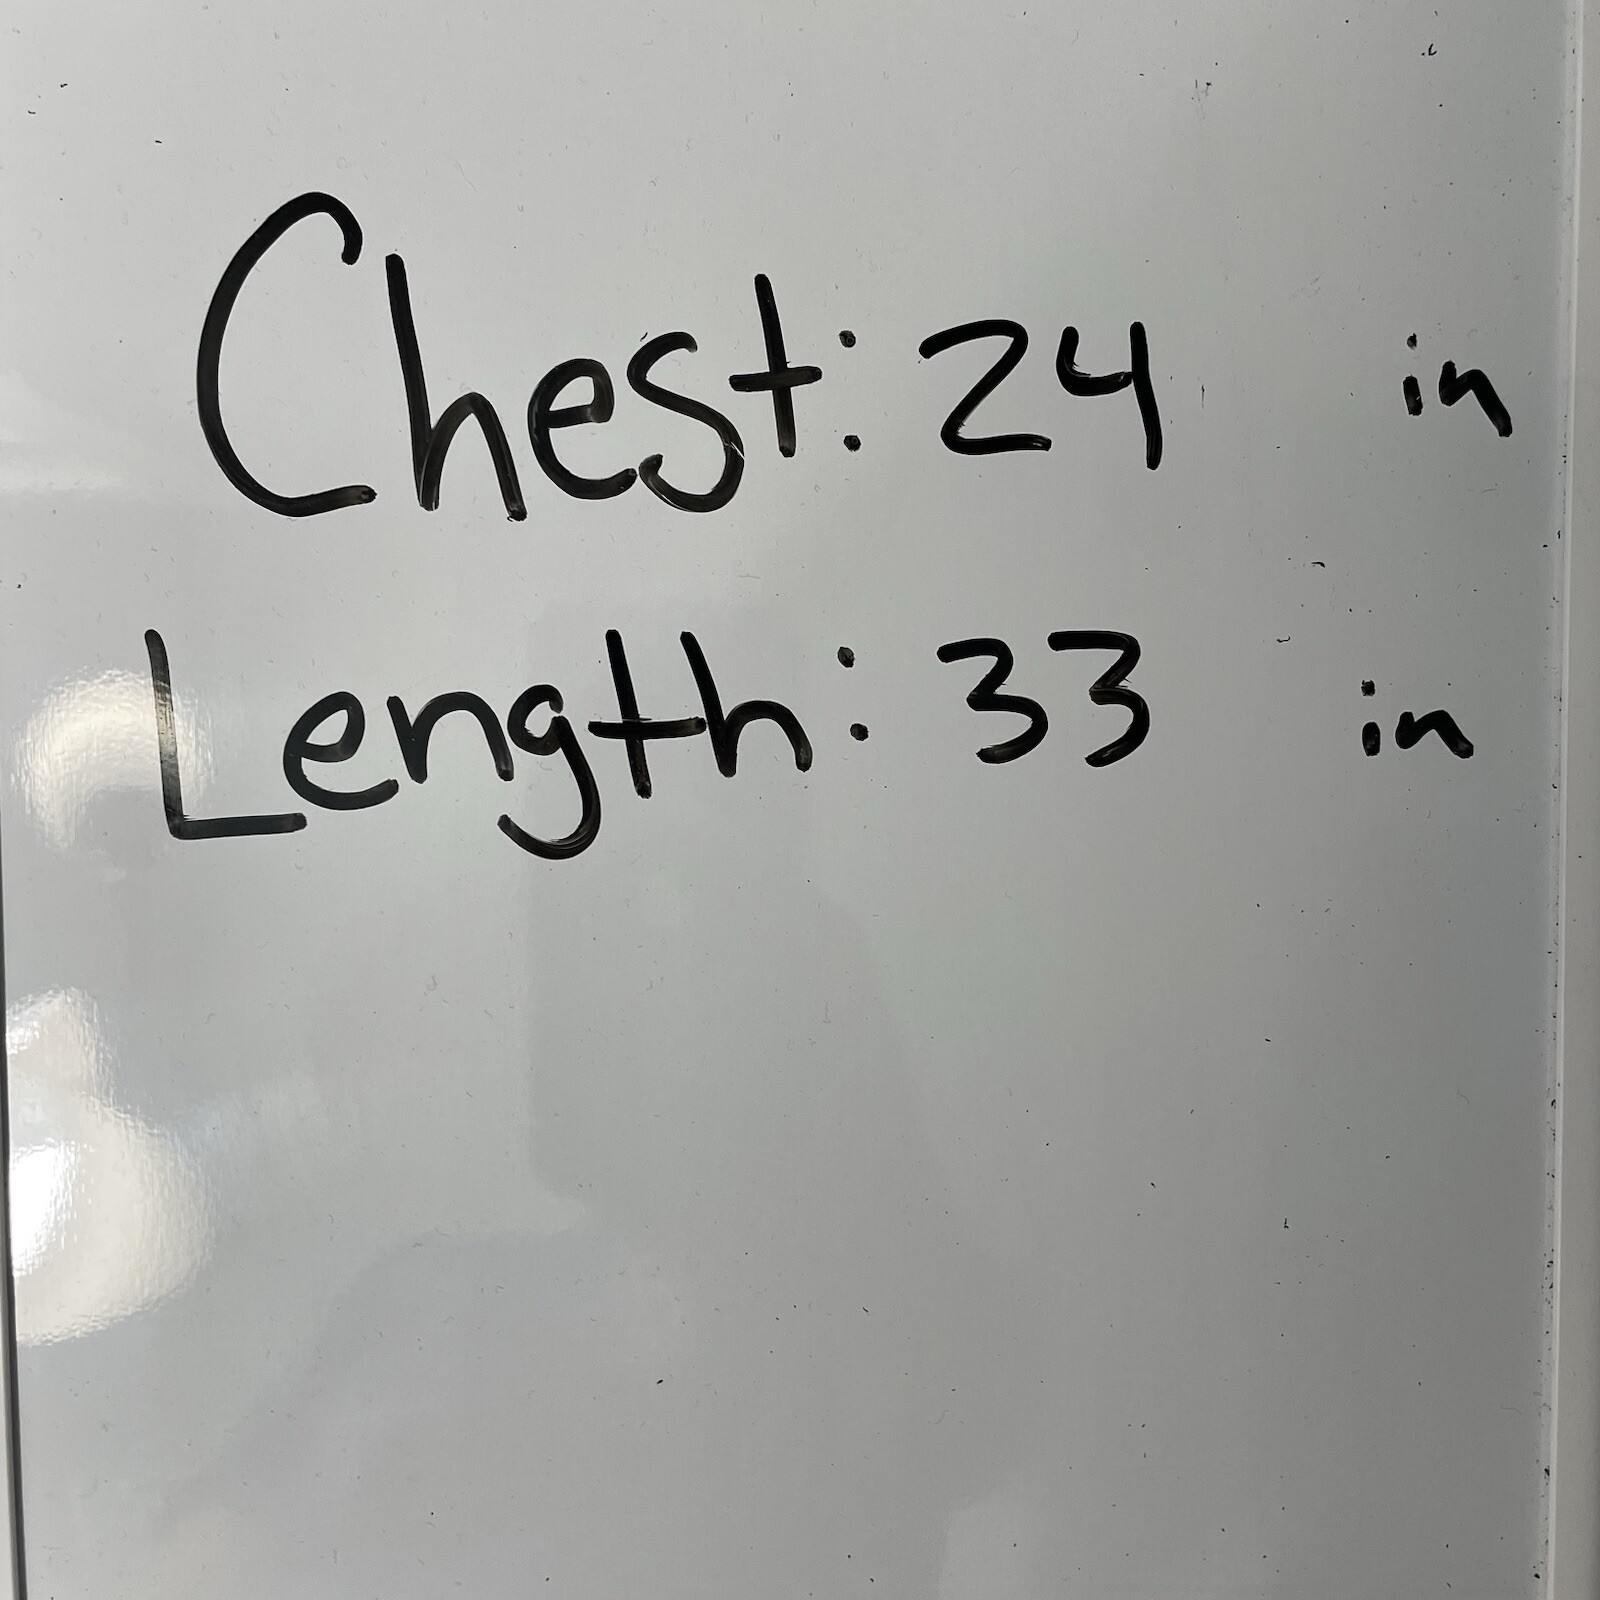 Chest: 24 in
Length: 33 in